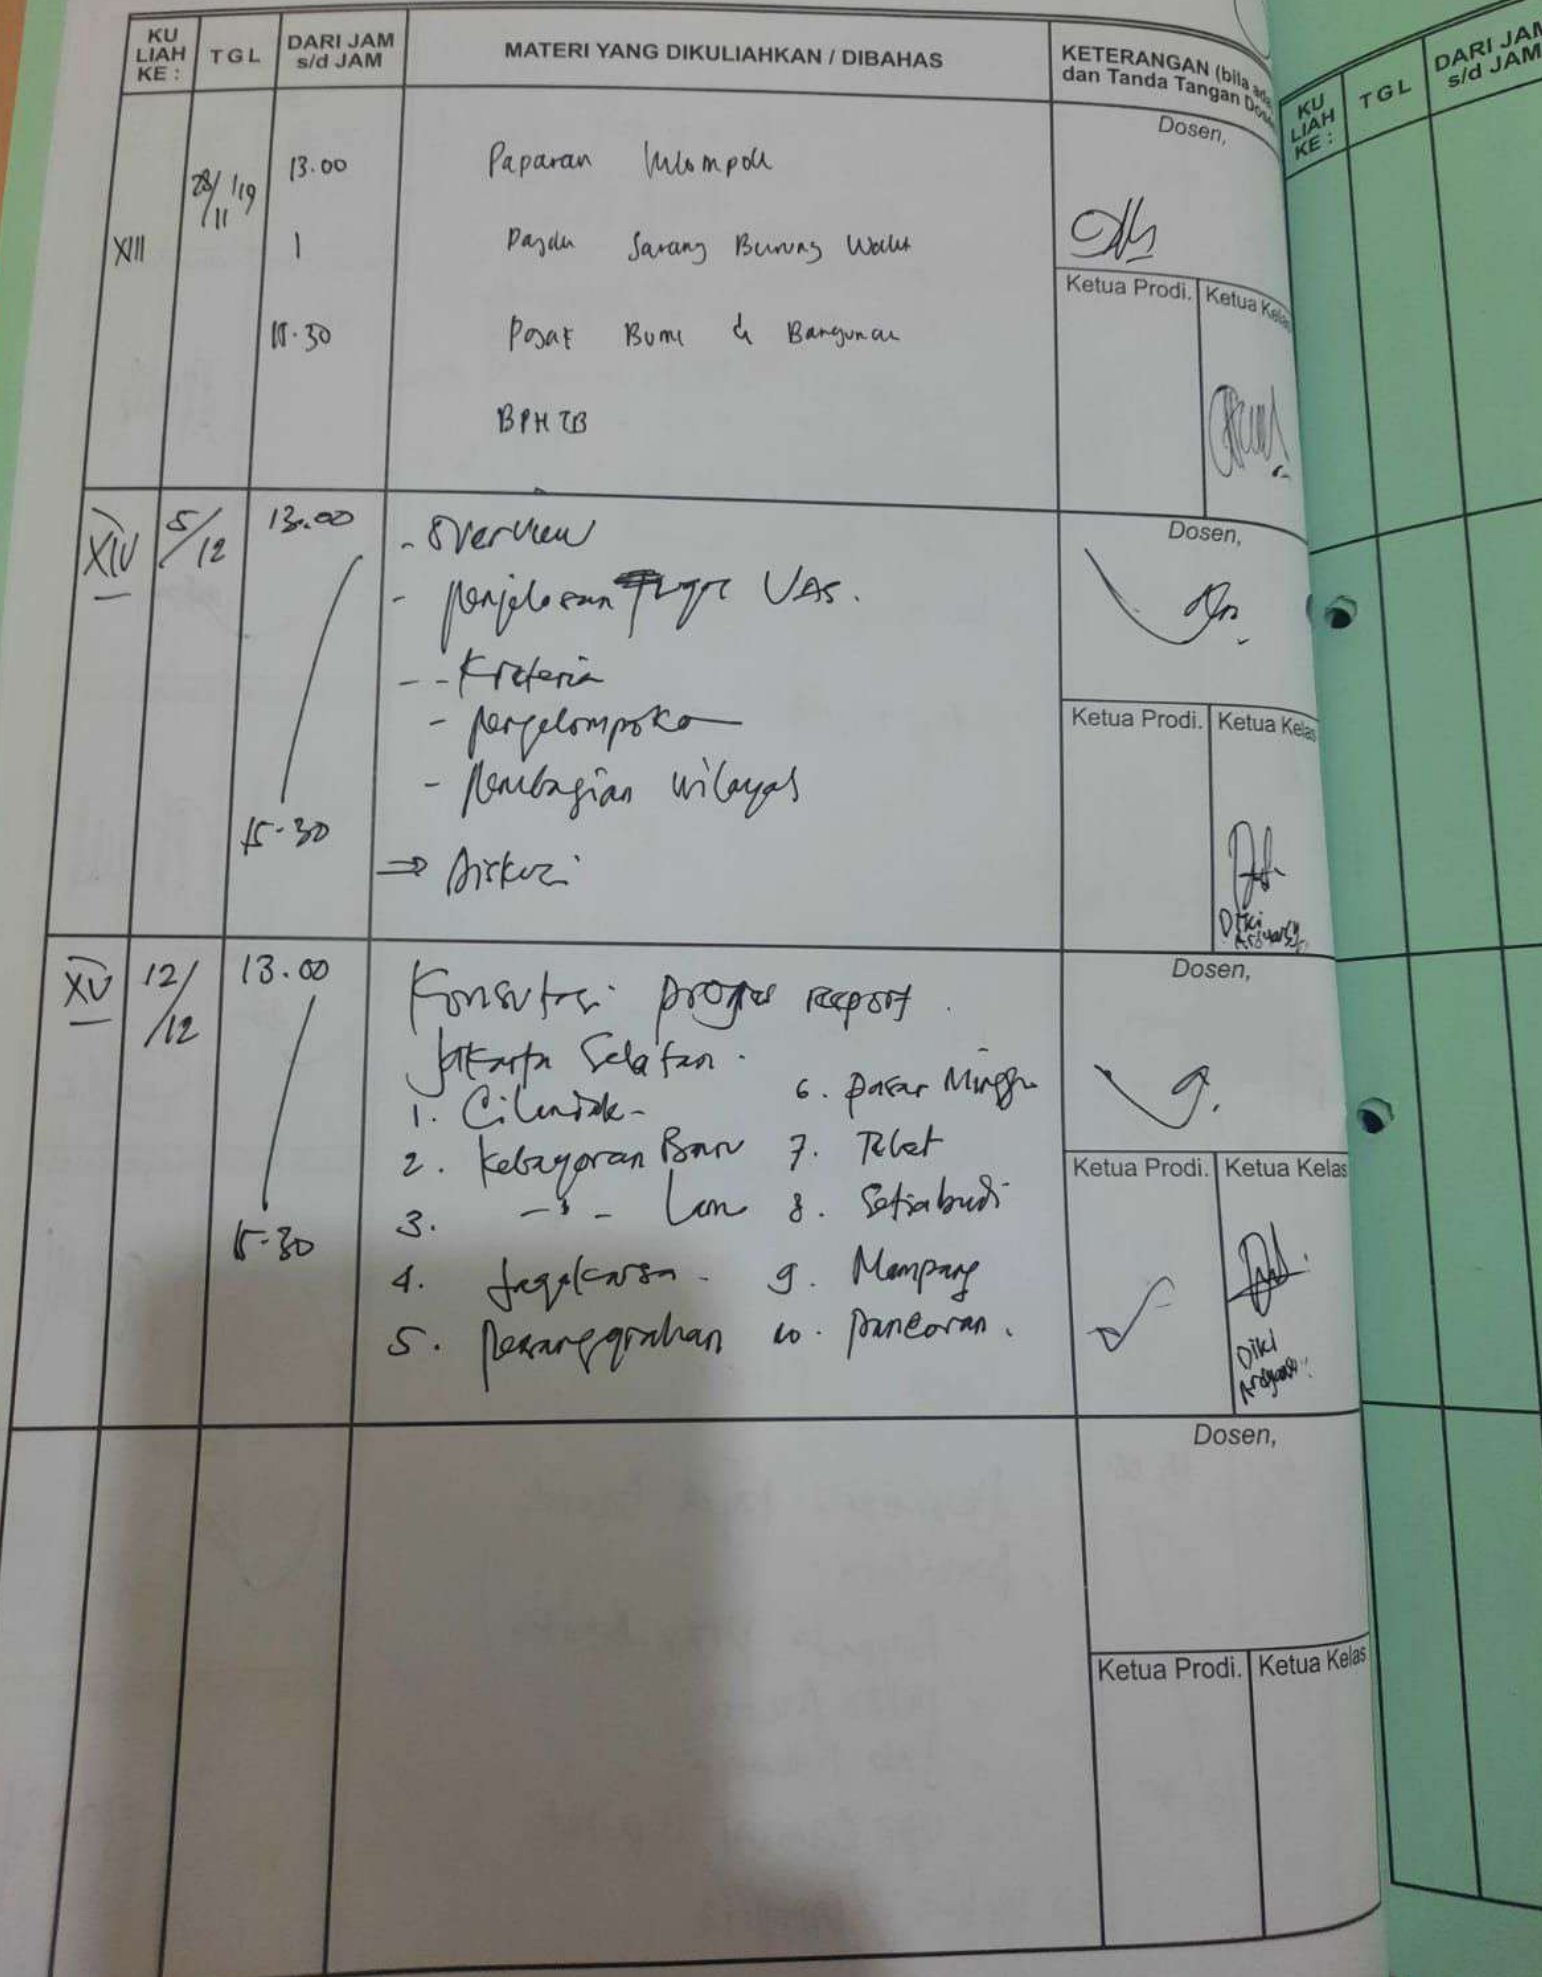 KU LIAH KE :
TGL
DARI JAM s/d JAM
MATERI YANG DIKULIAHKAN / DIBAHAS
KETERANGAN (bila ada
dan Tanda Tangan Dosen
XIII
28/11/19
13.00
15.30
Paparan
Sarang Burung Walet
Bumi & Bangunan
BPHTB
Dosen,
Ketua Prodi.
Ketua Kelas
XIV
5/12
13.00
15-30
- Overview
- penjelasan UAS.
-- Kriteria
-
- pembagian wilayah
⇒ Diskusi
Dosen,
Ketua Prodi.
Ketua Kelas
Diki
XV
12/12
13.00
15-30
Konsultasi progres report.
Jakarta Selatan.
1. Cilandak-
2. Kebayoran Baru
3. -"- Lama
4. Jagakarsa.
5. Pesanggrahan
6. Pasar Minggu
7. Tebet
8. Setiabudi
9. Mampang
10. Pancoran.
Dosen,
Ketua Prodi.
Ketua Kelas
Diki
Dosen,
Ketua Prodi.
Ketua Kelas
KU LIAH KE :
TGL
DARI JAM
s/d JAM